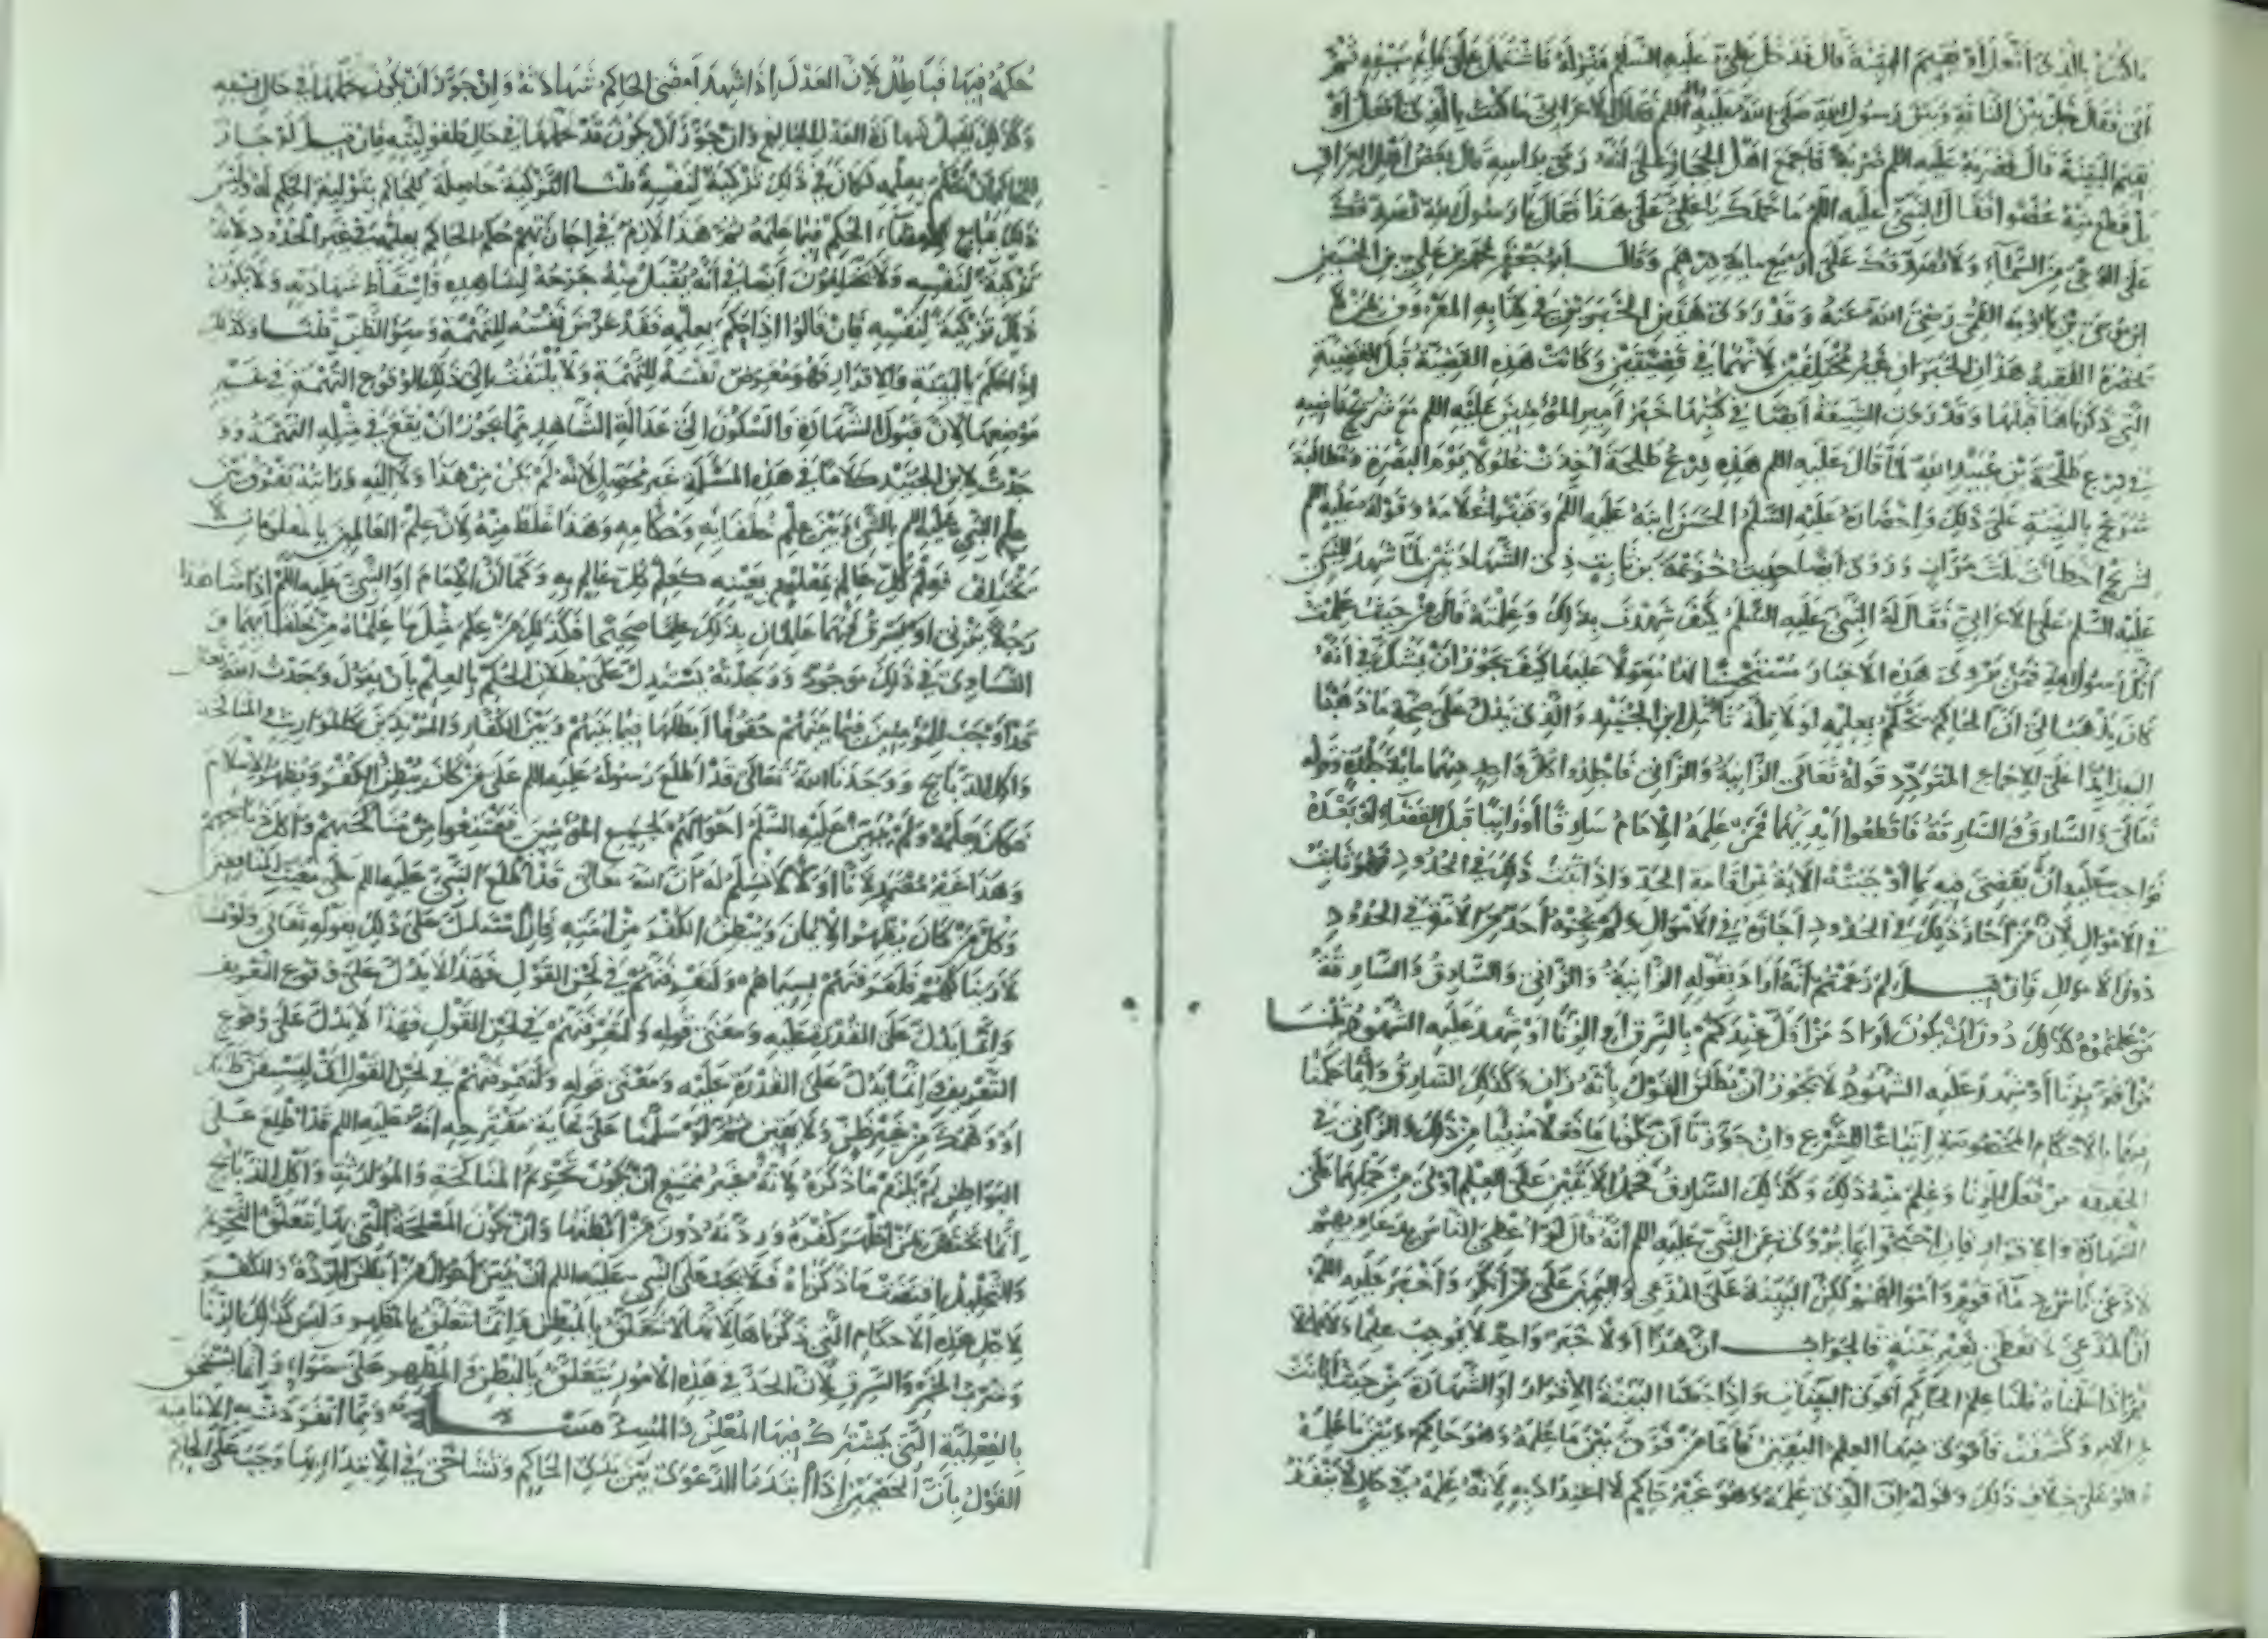 ما كنت بالذي أفعل أو تقيم البينة قال فدخل علي عليه السلام منزله فاشتمل على قائم سيفه ثم
أتى فقال خل بين الناقة وبين رسول الله صلى الله عليه وآله فقال الأعرابي ما كنت بالذي أفعل أو
تقيم البينة قال فضربه عليه السلم ضربة فاجمع أهل الحجاز على أنه رمى برأسه وقال بعض أهل العراق
بل قطع منه عضوا فقال النبي عليه السلم ما حملك يا علي على هذا فقال يا رسول الله نصدقك
على الوحي من السماء ولا نصدقك على أربع مائة درهم وقال أبو جعفر محمد بن علي بن الحسين
ابن موسى بن بابويه القمي رضي الله عنه وقد روى هذين الخبرين في كتابه المعروف بمن لا
يحضره الفقيه هذان الخبران غير مختلفين لأنهما في قضيتين وكانت هذه القضية قبل القضية
التي ذكرناها قبلها وقد روت الشيعة أيضا في كتبها خبر أمير المؤمنين عليه السلم مع شريح قاضيه
في درع طلحة بن عبيد الله لما قال عليه السلم هذه درع طلحة أخذت غلولا يوم البصرة ومطالبة
شريح بالبينة على ذلك وإحضاره عليه السلم الحسن ابنه عليه السلم وقنبرا غلامه وقوله عليه السلم
لشريح أخطأت ثلث مرات ورووا أيضا حديث خزيمة بن ثابت ذي الشهادتين لما شهد للنبي
عليه السلم على الأعرابي فقال له النبي عليه السلم كيف شهدت بذلك وعلمته قال من حيث علمت
أنك رسول الله فمن يروي هذه الأخبار مستحسنا لها معولا عليها كيف يجوز أن يشك في أنه
كان يذهب إلى أن الحاكم يحكم بعلمه لولا قلة تأمل ابن الجنيد والذي يدل على صحة ما ذهبنا
إليه زائدا على الإجماع المتردد قوله تعالى الزانية والزاني فاجلدوا كل واحد منهما مائة جلدة وقوله
تعالى والسارق والسارقة فاقطعوا أيديهما فمن علمه الإمام سارقا أو زانيا قبل القضاء أو بعده
فواجب عليه أن يقضي فيه بما أوجبته الآية من إقامة الحد وإذا ثبت ذلك في الحدود فهو ثابت
في الأموال لأن من أجاز ذلك في الحدود أجازه في الأموال ولم يجزه أحد من الأمة في الحدود
دون الأموال فإن قيل لم زعمتم أنه أراد بقوله الزانية والزاني والسارق والسارقة
من علمتموه كذلك دون أن يكون أراد من أقر عندكم بالسرق أو الزنا أو شهد عليه الشهود قلنا
من أقر بالزنا أو شهد عليه الشهود لا يجوز أن يطلق القول بأنه زان وكذلك السارق وإنما حكمنا
فيهما بالأحكام المخصوصة إتباعا للشرع وإن جوزنا أن يكونا ما فعلا شيئا من ذلك والزاني في
الحقيقة من فعل الزنا وعلم منه ذلك وكذلك السارق فحمل الآيتين على العلم أولى من حملهما على
الشهادة والإقرار فإن احتجوا بما يروى عن النبي عليه السلم أنه قال لو أعطي الناس بدعاويهم
لادعى ناس دماء قوم وأموالهم لكن البينة على المدعي واليمين على من أنكر وأخبر عليه السلم
أن المدعي لا يعطى بغير بينة فالجواب إن هذا أولا خبر واحد لا يوجب علما ولا عملا
ثم إذا سلمناه قلنا علم الحاكم أقوى البينات وإذا جعلنا البينة الإقرار أو الشهادة من حيث أبانت
عن الأمر وكشفت فأقوى منهما العلم اليقين فأما من فرق بين ما علمه وهو حاكم وبين ما علمه
وهو على خلاف ذلك وقوله إن الذي علمه وهو غير حاكم لا اعتداد به لأنه علمه في حال لا ينفذ
حكمه فيها فباطل لأن العدل إذا شهد أمضى الحاكم شهادته وإن جوز أن يكون تحملها في حال فسقه
وكذلك يقبل شهادة العدل البالغ وإن جوز أن يكون قد تحملها في حال طفوليته فإن قيل لو جاز
للحاكم أن يحكم بعلمه لكان في ذلك تزكية لنفسه قلنا التزكية حاصلة للحاكم بتولية الحكم له وليس
ذلك بتابع لإمضاء الحكم فيما علمه ثم هذا لازم في إجازتهم حكم الحاكم بعلمه في غير الحدود لأنه
تزكية لنفسه ولا يختلفون أيضا في أنه يقبل منه جرحه لشاهده وإسقاط شهادته ولا يكون
ذلك تزكية لنفسه فإن قالوا إذا حكم بعلمه فقد عرض نفسه للتهمة وسوء الظن قلنا وكذلك
إذا حكم بالبينة والإقرار فهو معرض نفسه للتهمة ولا يلتفت إلى ذلك لوقوع التهمة في غير
موضعها لأن قبول الشهادة والسكون إلى عدالة الشاهد مما يجوز أن يقع في مثله التهم ووو
جدت لابن الجنيد كلاما في هذه المسئلة غير محصل لأنه لم يكن من هذا ولا إليه ورايته يفرق بين
علم النبي عليه السلم بالشيء وبين علم خلفائه وحكامه وهذا غلط منه لأن علم العالمين بالمعلومات لا
يختلف فعلم كل عالم بمعلوم بعينه كعلم كل عالم به وكما أن الإمام أو النبي عليه السلم إذا شاهدا
رجلا يزني أو يسرق فهما عالمان بذلك علما صحيحا فكذلك من علم مثل ما علماه من خلفائهما و
التساوي في ذلك موجود ووجدته يستدل على بطلان الحكم بالعلم بأن يقول وجدت الله تعالى
قد أوجب للمؤمنين فيما بينهم حقوقا أبطلها فيما بينهم وبين الكفار والمرتدين كالمواريث والمناكحة
وأكل الذبائح ووجدنا الله تعالى قد أطلع رسوله عليه السلم على من كان يبطن الكفر ويظهر الإسلام
فكان يعلمه ولم يبين عليه السلم أحوالهم لجميع المؤمنين فيمتنعوا من مناكحتهم وأكل ذبائحهم
وهذا غير معتمد لأنا أولا لا نسلم له أن الله تعالى قد أطلع النبي عليه السلم على مغيب المنافقين
وكل من كان يظهر الإيمان ويبطن الكفر من أمته فإن استدلت على ذلك بقوله تعالى ولو نشاء
لأريناكهم فلعرفتهم بسيماهم ولتعرفنهم في لحن القول فهذا لا يدل على وقوع التعريف
وإنما يدل على القدرة عليه ومعنى قوله ولتعرفنهم في لحن القول فهذا لا يدل على وقوع
التعريف وإنما يدل على القدرة عليه ومعنى قوله ولتعرفنهم في لحن القول أي ليستقر ظنك
أو وهمك من غير ظن ولا يقين ثم لو سلمنا على غاية مقترحه أنه عليه السلم قد اطلع على
البواطن لم يلزم ما ذكره لأنه غير ممتنع أن يكون تحريم المناكحة والموارثة وأكل الذبائح
إنما يختص بمن أظهر كفره وردته دون من أبطنها وأن يكون المصلحة التي بها يتعلق التحريم
والتحليل اقتضت ما ذكرناه فلا يجب على النبي عليه السلم أن يبين أحوال من أبطن الردة والكفر
لأجل هذه الأحكام التي ذكرناها لأنها لا تتعلق بالمبطن وإنما تتعلق بالمظهر وليس كذلك الزنا
وشرب الخمر والسرق لأن الحد في هذه الأمور يتعلق بالمبطن والمظهر على سواء وإنما يستحق
بالفعلية التي يشترك فيها المعلن والمسر مسئلة ومما انفردت به الإمامية
القول بأن الخصمين إذا ابتدرا الدعوى بين يدي الحاكم وتشاحا في الابتداء بها وجب على الحاكم